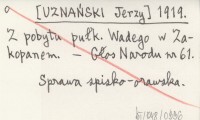 [UZNAŃSKI Jerzy] 1919.
Z pobytu pułk. Wadego w Za-
kopanem. – Głos Narodu nr 61.
Sprawa spisko-orawska.